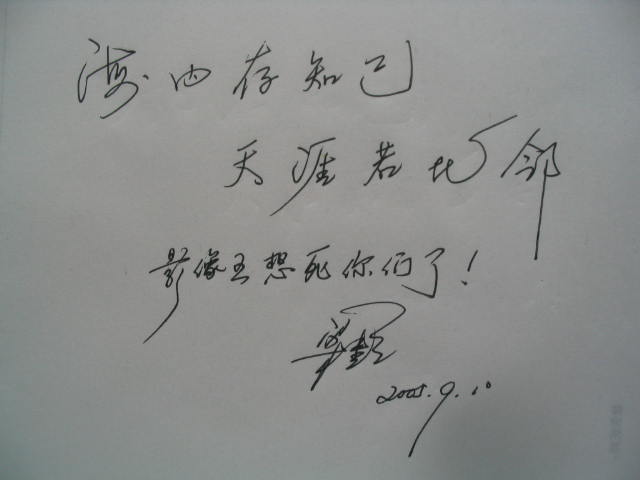 海内存知己
天涯若比邻
影像王想死你们了!
2005.9.10